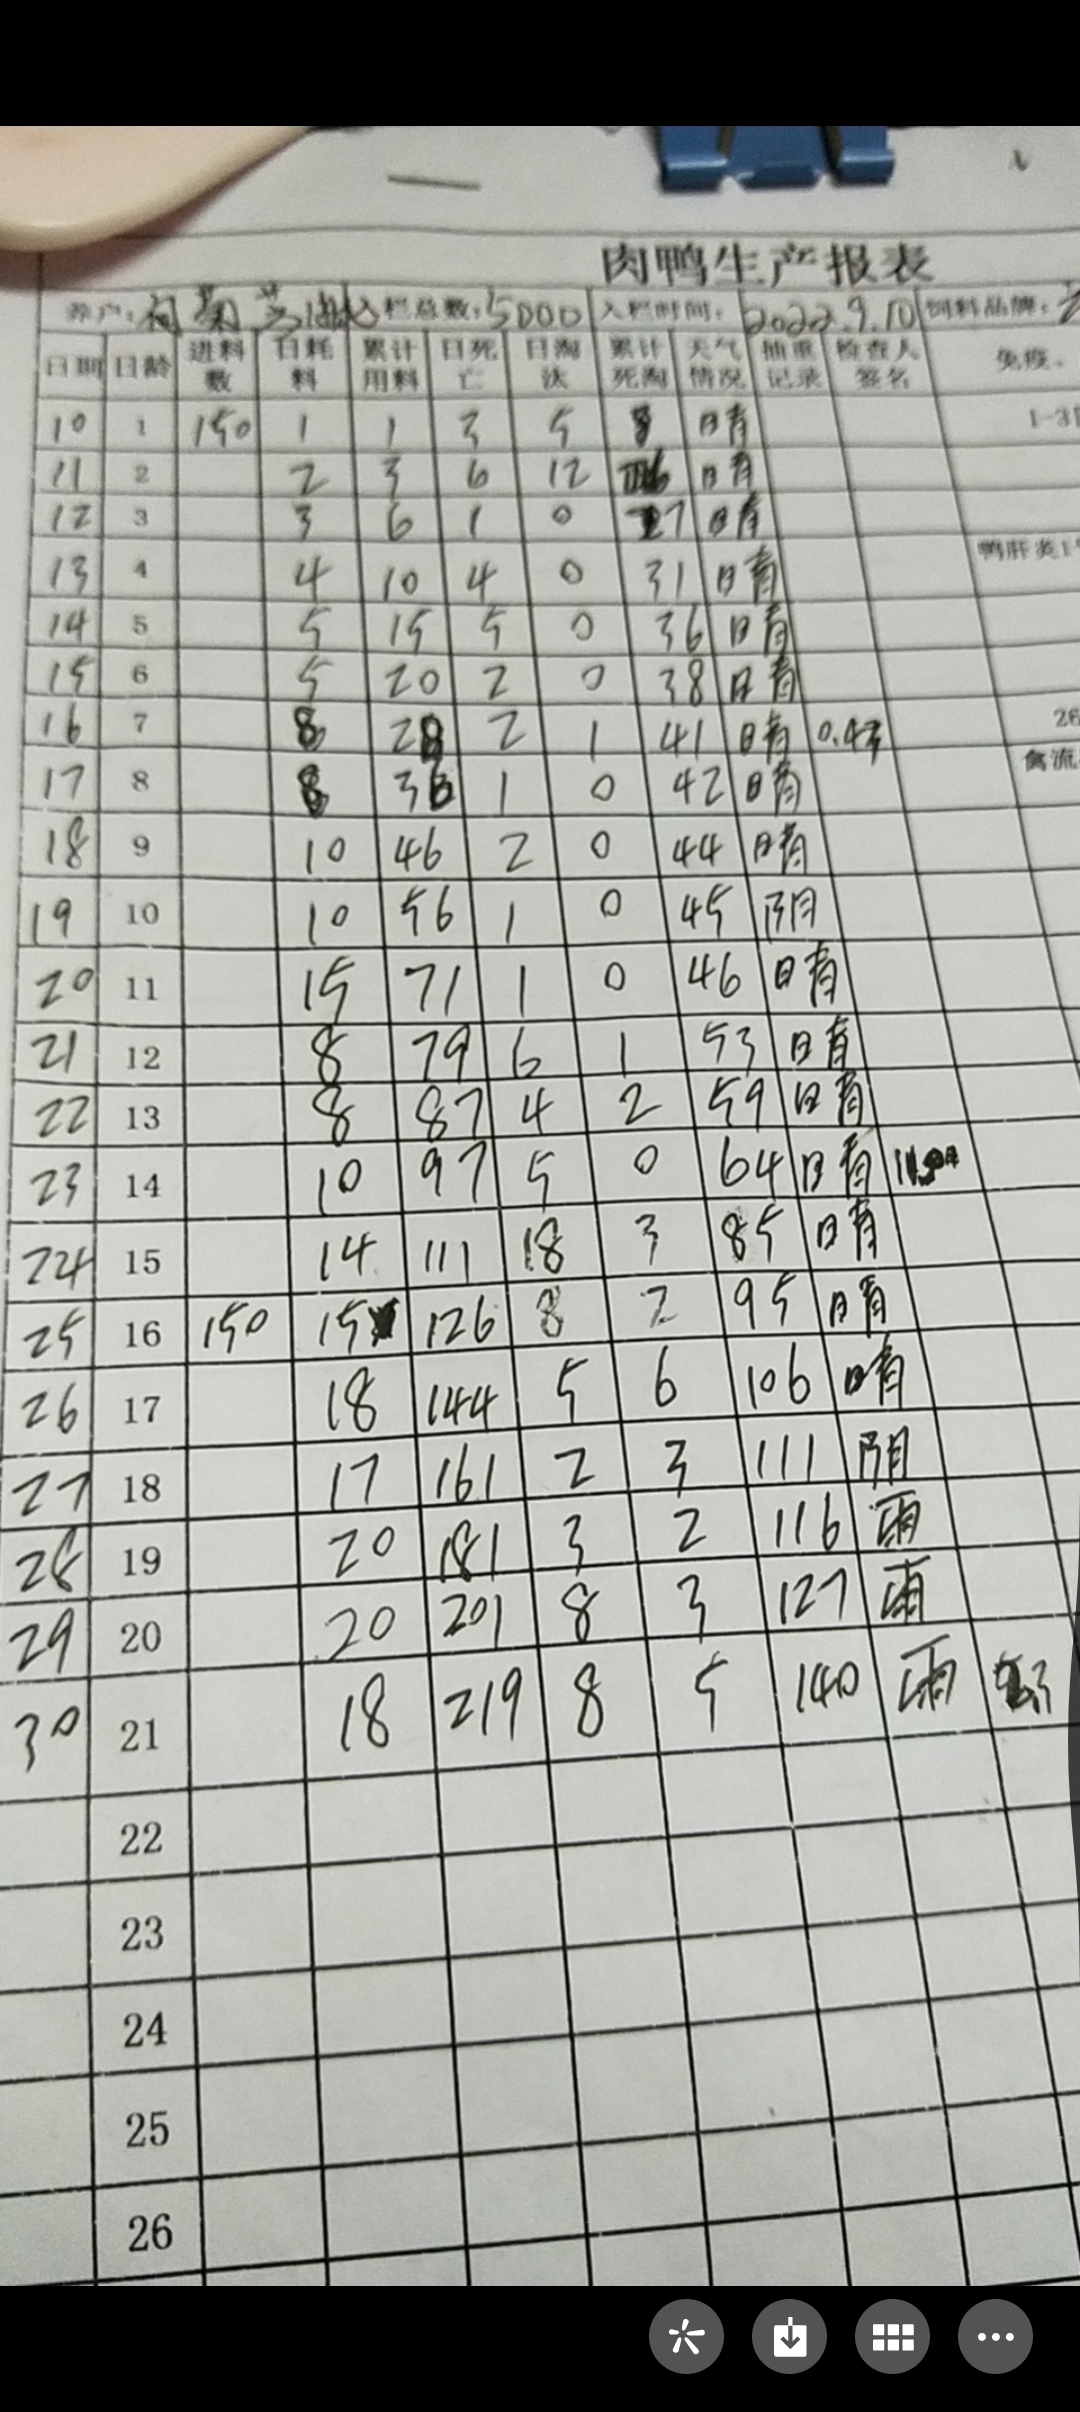 肉鸭生产报表
养户: 菊芝 入栏总数: 5000 入栏时间: 2022.9.10 饲料品牌:
日期 日龄 进料数 日耗料 累计用料 日死亡 日淘汰 累计死淘 天气情况 抽重记录 检查人签名 免疫、
10 1 150 1 1 3 5 8 晴
11 2 2 3 6 12 26 晴
12 3 3 6 1 0 27 晴
13 4 4 10 4 0 31 晴 鸭肝炎1
14 5 5 15 5 0 36 晴
15 6 5 20 2 0 38 晴
16 7 8 28 2 1 41 晴 28
17 8 8 36 1 0 42 晴 禽流
18 9 10 46 2 0 44 晴
19 10 10 56 1 0 45 阴
20 11 15 71 1 0 46 晴
21 12 8 79 6 1 53 晴
22 13 8 87 4 2 59 晴
23 14 10 97 5 0 64 晴
24 15 14 111 18 3 85 晴
25 16 150 15 126 8 2 95 晴
26 17 18 144 5 6 106 晴
27 18 17 161 2 3 111 阴
28 19 20 181 3 2 116 雨
29 20 20 201 8 3 127 雨
30 21 18 219 8 5 140 雨
22
23
24
25
26